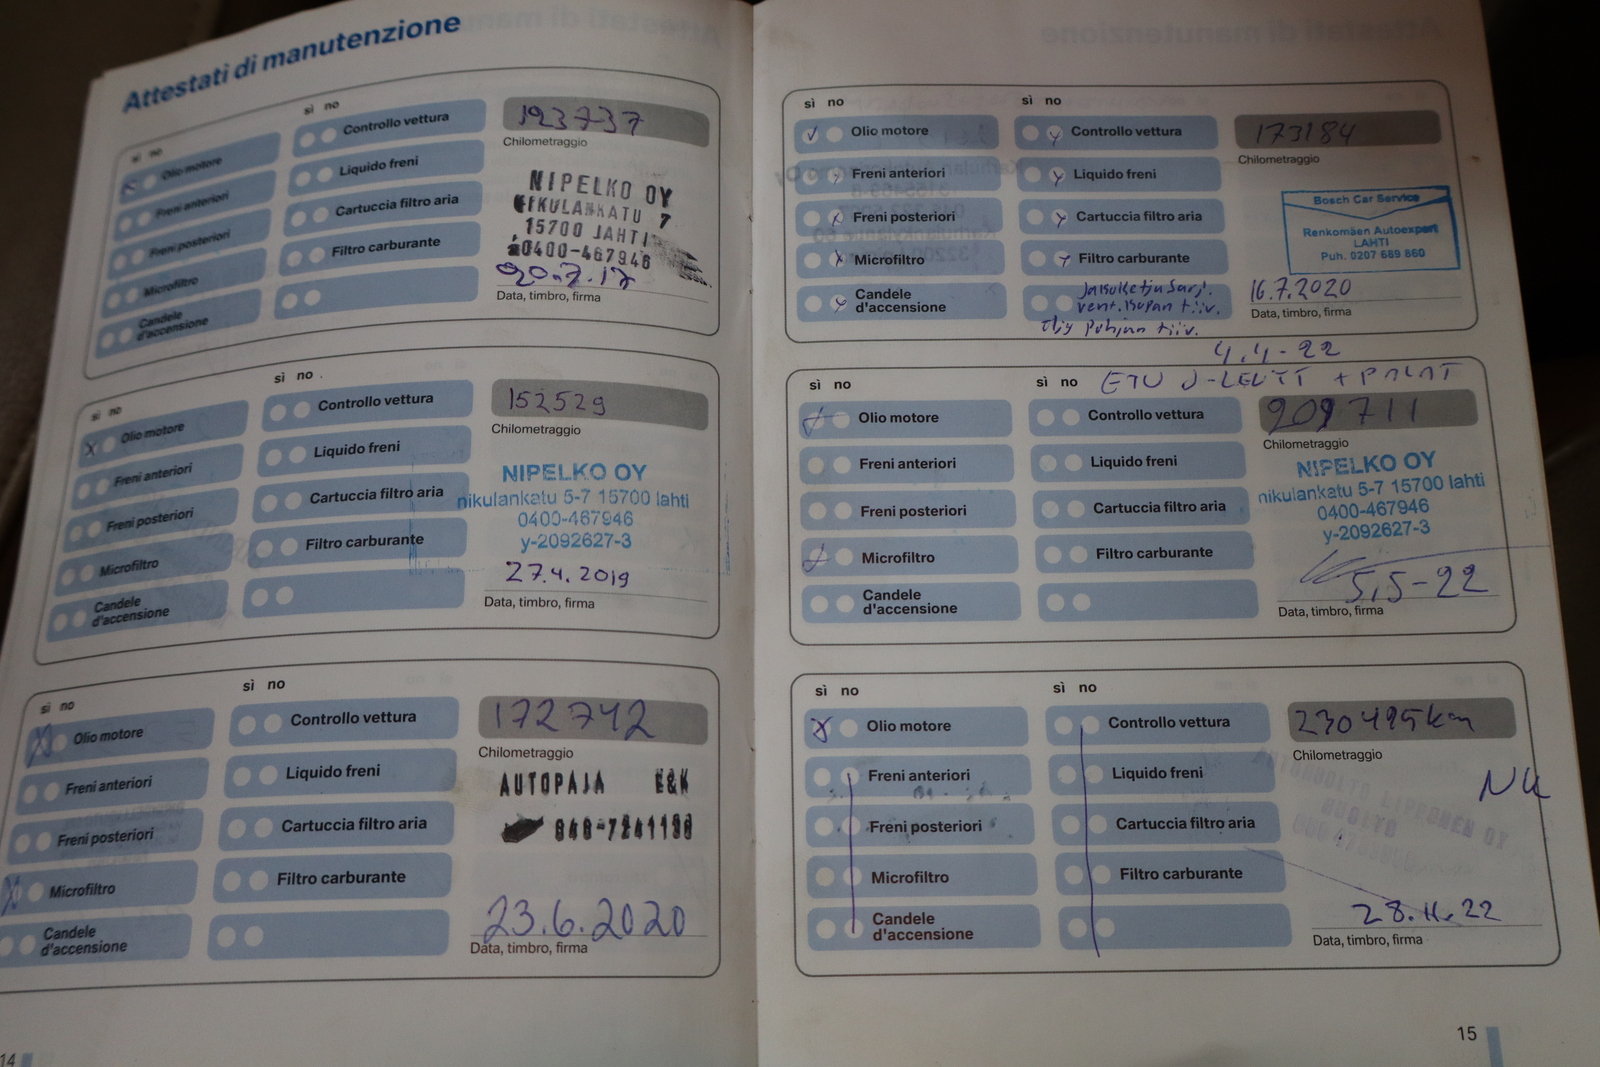 Attestati di manutenzione
sì no
Olio motore
Freni anteriori
Freni posteriori
Microfiltro
Candele
d'accensione
sì no
Controllo vettura
Liquido freni
Cartuccia filtro aria
Filtro carburante
123737
Chilometraggio
NIPELKO OY
15700
0400-467946
20.7.17
Data, timbro, firma
sì no
Olio motore
Freni anteriori
Freni posteriori
Microfiltro
Candele
d'accensione
sì no
Controllo vettura
Liquido freni
Cartuccia filtro aria
Filtro carburante
152529
Chilometraggio
NIPELKO OY
nikulankatu 5-7 15700 lahti
0400-467946
y-2092627-3
27.4.2019
Data, timbro, firma
sì no
Olio motore
Freni anteriori
Freni posteriori
Microfiltro
Candele
d'accensione
sì no
Controllo vettura
Liquido freni
Cartuccia filtro aria
Filtro carburante
172742
Chilometraggio
AUTOPAJA E&K
23.6.2020
Data, timbro, firma
14
sì no
Olio motore
Freni anteriori
Freni posteriori
Microfiltro
Candele
d'accensione
sì no
Controllo vettura
Liquido freni
Cartuccia filtro aria
Filtro carburante
Jakoketju sarj.
vent.kopan tiiv.
öljy pohjan tiiv.
173184
Chilometraggio
Bosch Car Service
Renkomäen Autoexpert
LAHTI
Puh. 0207 689 860
16.7.2020
Data, timbro, firma
4.4-22
ETU J-LEVYT + PALAT
sì no
Olio motore
Freni anteriori
Freni posteriori
Microfiltro
Candele
d'accensione
sì no
Controllo vettura
Liquido freni
Cartuccia filtro aria
Filtro carburante
209711
Chilometraggio
NIPELKO OY
nikulankatu 5-7 15700 lahti
0400-467946
y-2092627-3
5.5-22
Data, timbro, firma
sì no
Olio motore
Freni anteriori
Freni posteriori
Microfiltro
Candele
d'accensione
sì no
Controllo vettura
Liquido freni
Cartuccia filtro aria
Filtro carburante
230495km
Chilometraggio
28.11.22
Data, timbro, firma
15